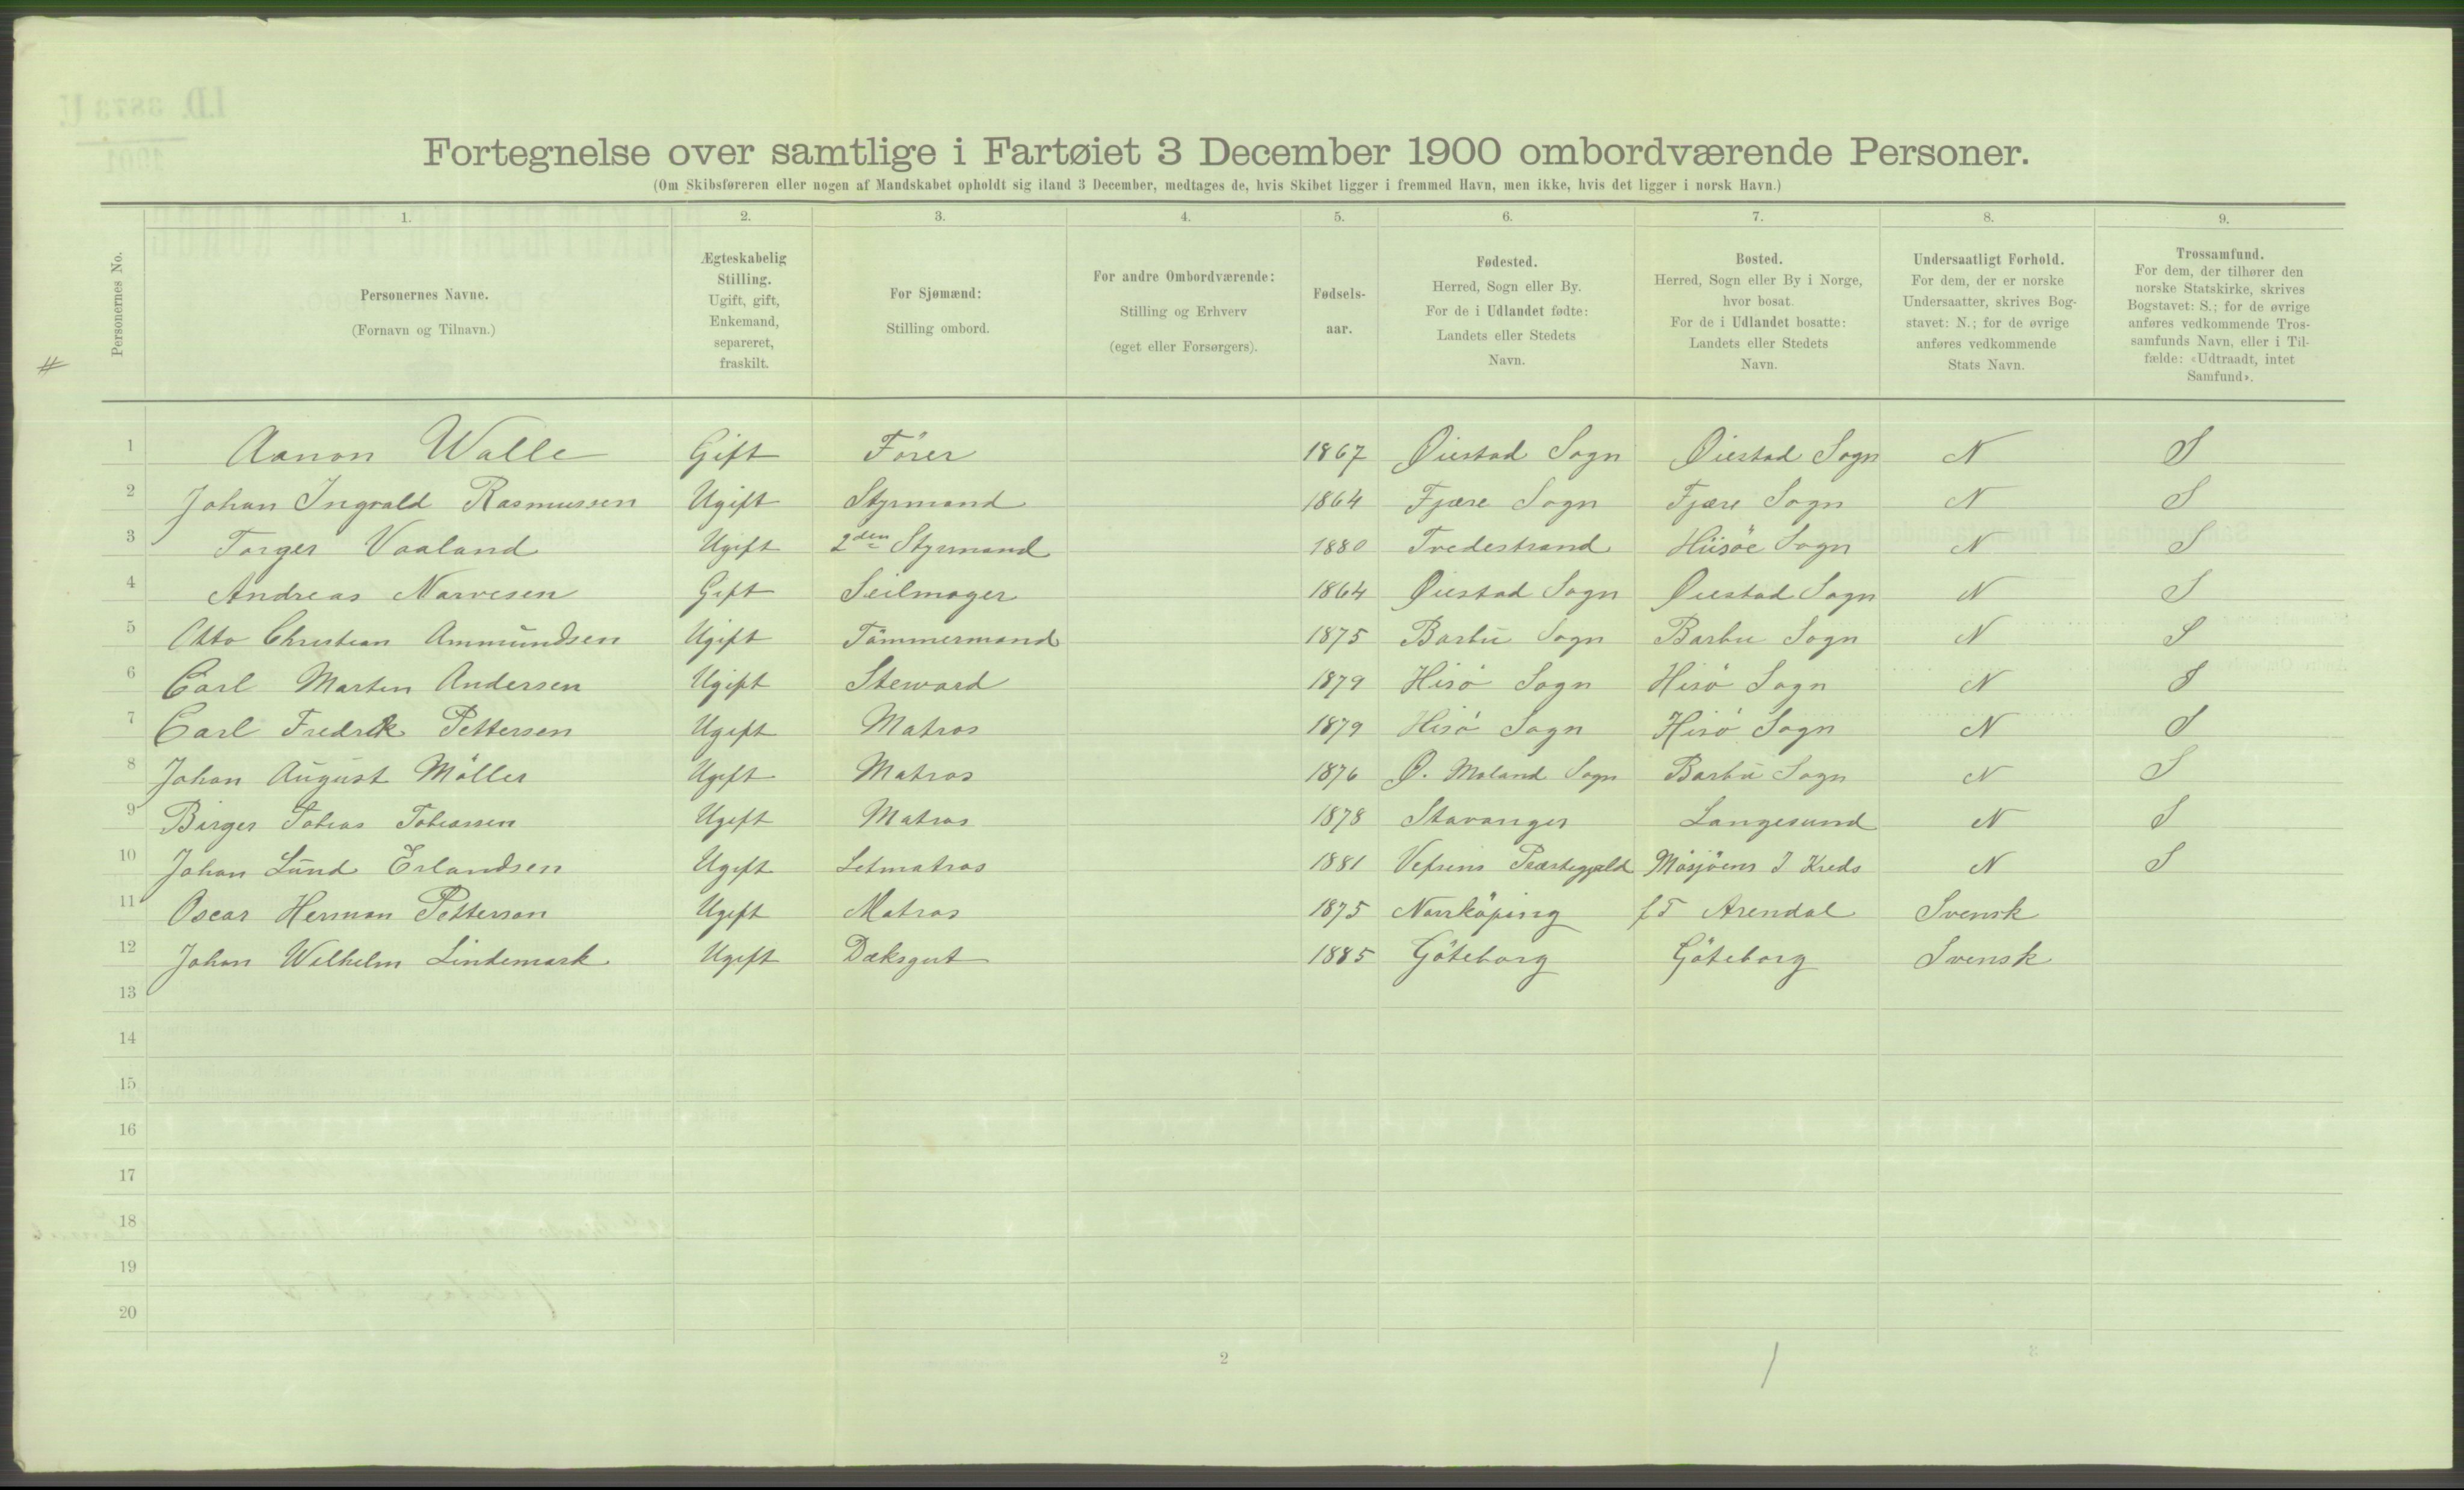 Fortegnelse over samtlige i Fartøiet 3 December 1900 ombordværende Personer.
(Om Skibsføreren eller nogen af Mandskabet opholdt sig iland 3 December, medtages de, hvis Skibet ligger i fremmed Havn, men ikke, hvis det ligger i norsk Havn.)
1. 2. 3. 4. 5. 6. 7. 8. 9.
Personernes No.
Personernes Navne.
(Fornavn og Tilnavn.)
Ægteskabelig
Stilling.
Ugift, gift,
Enkemand,
separeret,
fraskilt.
For Sjømænd:
Stilling ombord.
For andre Ombordværende:
Stilling og Erhverv
(eget eller Forsørgers).
Fødsels-
aar.
Fødested.
Herred, Sogn eller By.
For de i Udlandet fødte:
Landets eller Stedets
Navn.
Bosted.
Herred, Sogn eller By i Norge,
hvor bosat.
For de i Udlandet bosatte:
Landets eller Stedets
Navn.
Undersaatligt Forhold.
For dem, der er norske
Undersaatter, skrives Bog-
stavet: N.; for de øvrige
anføres vedkommende
Stats Navn.
Trossamfund.
For dem, der tilhører den
norske Statskirke, skrives
Bogstavet: S.; for de øvrige
anføres vedkommende Tros-
samfunds Navn, eller i Til-
fælde: «Udtraadt, intet
Samfund».
1 Aanon Walle Gift Förer 1867 Øiestad Sogn Øiestad Sogn N S
2 Johan Ingvald Rasmussen Ugift Styrmand 1864 Fjære Sogn Fjære Sogn N S
3 Torger Vaaland Ugift 2den Styrmand 1880 Tvedestrand Hiisöe Sogn N S
4 Andreas Narvesen Gift Seilmager 1864 Øiestad Sogn Øiestad Sogn N S
5 Otto Christian Ammundsen Ugift Tömmermand 1875 Barbu Sogn Barbu Sogn N S
6 Carl Martin Andersen Ugift Steward 1879 Hisö Sogn Hisö Sogn N S
7 Carl Fredrik Pettersen Ugift Matros 1879 Hisö Sogn Hisö Sogn N S
8 Johan August Möller Ugift Matros 1876 Ø. Moland Sogn Barbu Sogn N S
9 Birger Tobias Tobiassen Ugift Matros 1878 Stavanger Langesund N S
10 Johan Lund Erlandsen Ugift Letmatros 1881 Vefsens Præstegjæld Mosjöens I Kreds N S
11 Oscar Herman Petterson Ugift Matros 1875 Norrköping f T Arendal Svensk
12 Johan Wilhelm Lindemark Ugift Dæksgut 1885 Göteborg Göteborg Svensk
13
14
15
16
17
18
19
20
2